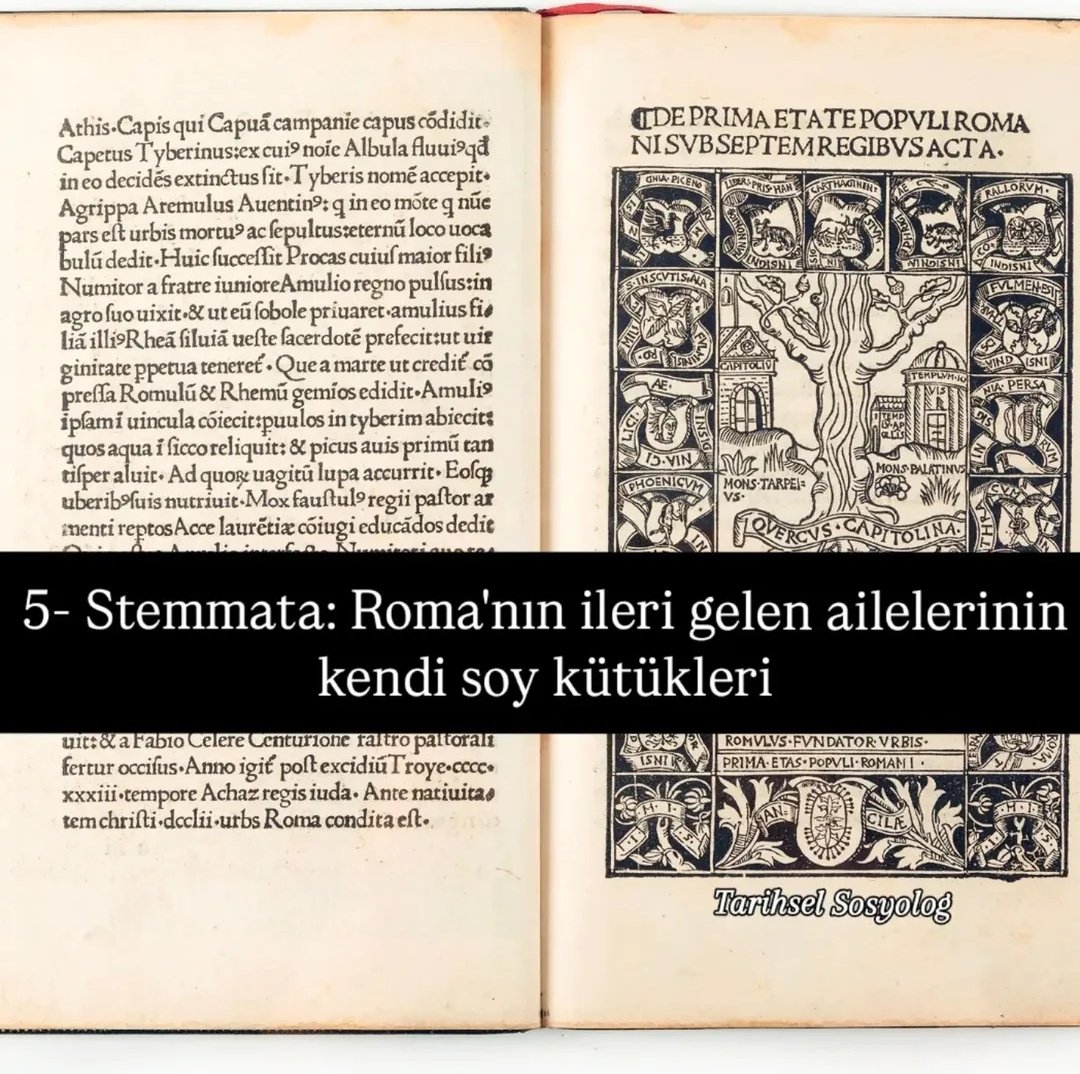 Athis·Capis qui Capuā campanie capus cōdidit·
Capetus Tyberinus:ex cuiꝰ noīe Albula fluuiꝰqd̄
in eo decidēs extinctus sit·Tyberis nomē accepit·
Agrippa Aremulus Auentinꝰ: q in eo mōte q nūc
pars est urbis mortuꝰ ac sepultus:eternū loco uoca
bulū dedit·Huic successit Procas cuius maior filiꝰ
Numitor a fratre iuniore Amulio regno pulsus:in
agro suo uixit·& ut eū sobole priuaret·amulius fi⸗
liā illiꝰRheā siluiā ueste sacerdotē prefecit:ut uir
ginitate ppetua teneret̄·Que a marte ut credit̄ cō
pressa Romulū & Rhemū gemios edidit·Amuliꝰ
ipsam ī uincula cōiecit:puulos in tyberim abiecit:
quos aqua ī sicco reliquit: & picus auis primū tan
tisper aluit· Ad quoꝝ uagitū lupa accurrit· Eosqꝫ
uberibꝰsuis nutriuit·Mox faustulꝰ regii pastor ar
menti reptos Acce laurētiæ cōiugi educādos dedit
5- Stemmata: Roma'nın ileri gelen ailelerinin
kendi soy kütükleri
uit:& a Fabio Celere Centurione rastro pastorali
fertur occisus·Anno igit̄ post excidiū Troye·cccc·
xxxiii·tempore Achaz regis iuda· Ante natiuita⸗
tem christi·dcclii·urbs Roma condita est·
DE PRIMA ETATE POPVLI ROMA
NI SVB SEPTEM REGIBVS ACTA·
GNIA·PICENO
LIBERI·PRIS·HAN
CARTHAGINEN:
AE
RALLORVM·
INDISNI
INDISNI
INDISNI
S·INSCVTIS·AIA
FVLMEN·EST
CAPITOLIV
TEMPLVM·IO
VIS
NIA·PERSA
RVM
AE·
PHOENICVM
MONS·TARPEI⸗
VS·
MONS·PALATINVS
QVERCVS·CAPITOLINA·
ROMVLVS·FVNDATOR·VRBIS·
PRIMA·ETAS·POPVLI·ROMANI·
ISNI
H·I·S
AN·
CILÆ
H·I·S
Tarihsel Sosyolog